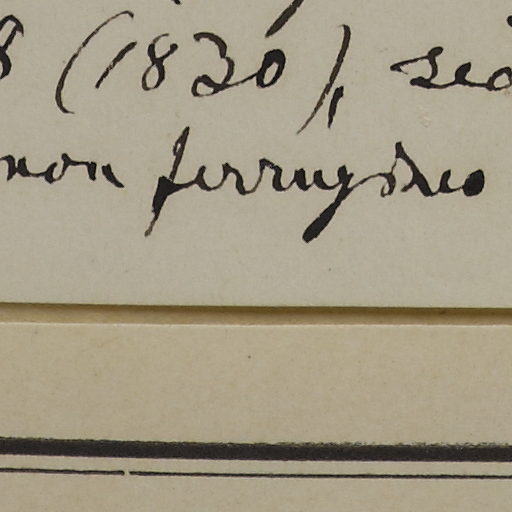 8 (1830), sed
non ferrugineo